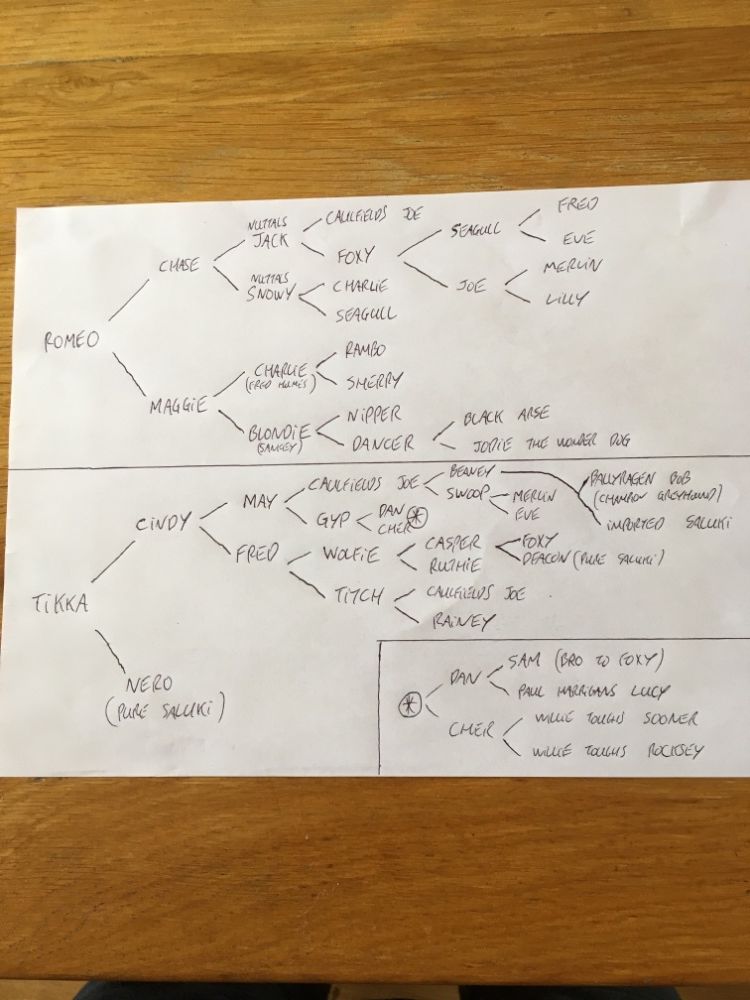 FRED
NUTTALS CAULFIELDS JOE SEAGULL
JACK EVE
CHASE FOXY MERLIN
NUTTALS CHARLIE JOE
SNOWY LILLY
SEAGULL
ROMEO
CHARLIE RAMBO
(FRED HOLMES) SHERRY
MAGGIE
NIPPER BLACK ARSE
BLONDIE DANCER JODIE THE WONDER DOG
CAULFIELDS JOE BEANEY BALLYRAGEN BOB
MAY SWOOP MERLIN (CHAMPION GREYHOUND)
CINDY GYP DAN EVE
CHER IMPORTED SALUKI
FRED WOLFIE CASPER FOXY
RUTHIE DEACON (PURE SALUKI)
TIKKA TITCH CAULFIELDS JOE
RAINEY
NERO SAM (BRO TO FOXY)
(PURE SALUKI) DAN
PAUL HARRIGANS LUCY
CHER WILLIE TOUGHS SOONER
WILLIE TOUGHS ROCKSEY